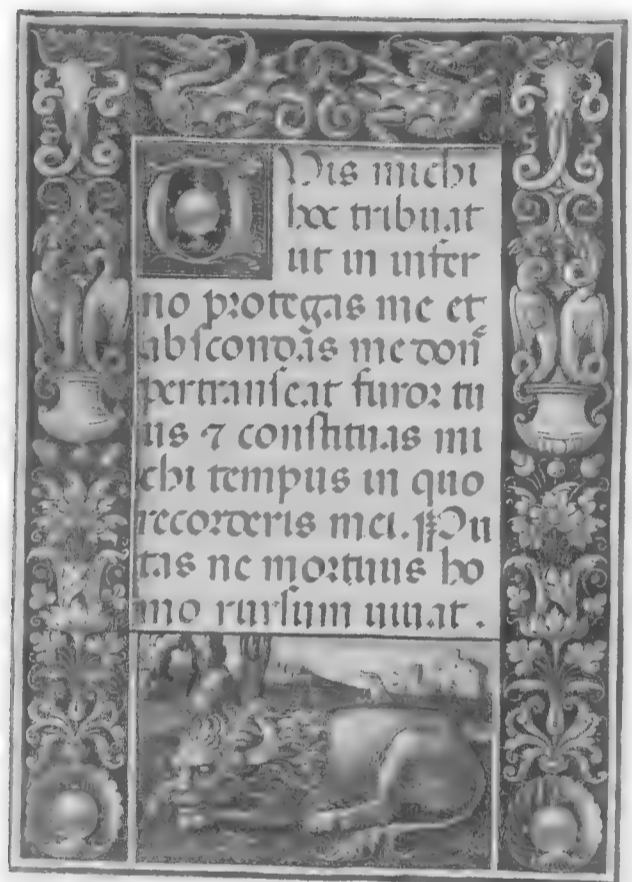 QVis michi
hoc tribuat
ut in infer
no protegas me et
abscondas me donē
pertranseat furor tu
us ⁊ constituas mi
chi tempus in quo
recorderis mei. Pu
tas ne mortuus ho
mo rursum uiuat.